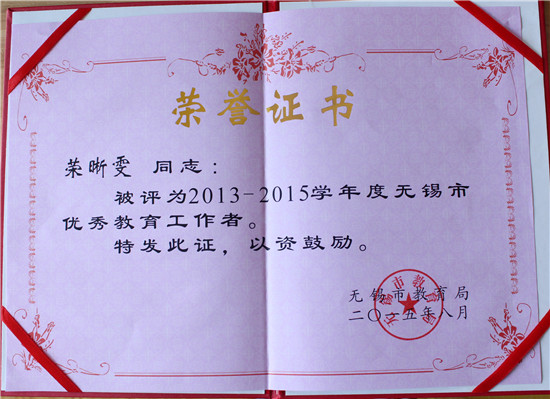 荣誉证书
荣晰雯 同志：
被评为2013-2015学年度无锡市
优秀教育工作者。
特发此证，以资鼓励。
无锡市教育局
二〇一五年八月
无锡市教育局